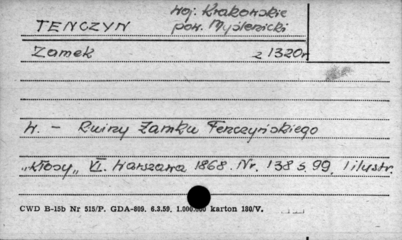 woj. Krakowskie
TENCZYN pow. Myślenicki
Zamek z 1320r
W. - Ruiny Zamku Tenczyńskiego
"Kłosy" VI. Warszawa 1868. Nr. 138 s. 99, 1 ilustr.
CWD B-15b Nr 515/P. GDA-809. 6.3.59. 1.000.000 karton 180/V.